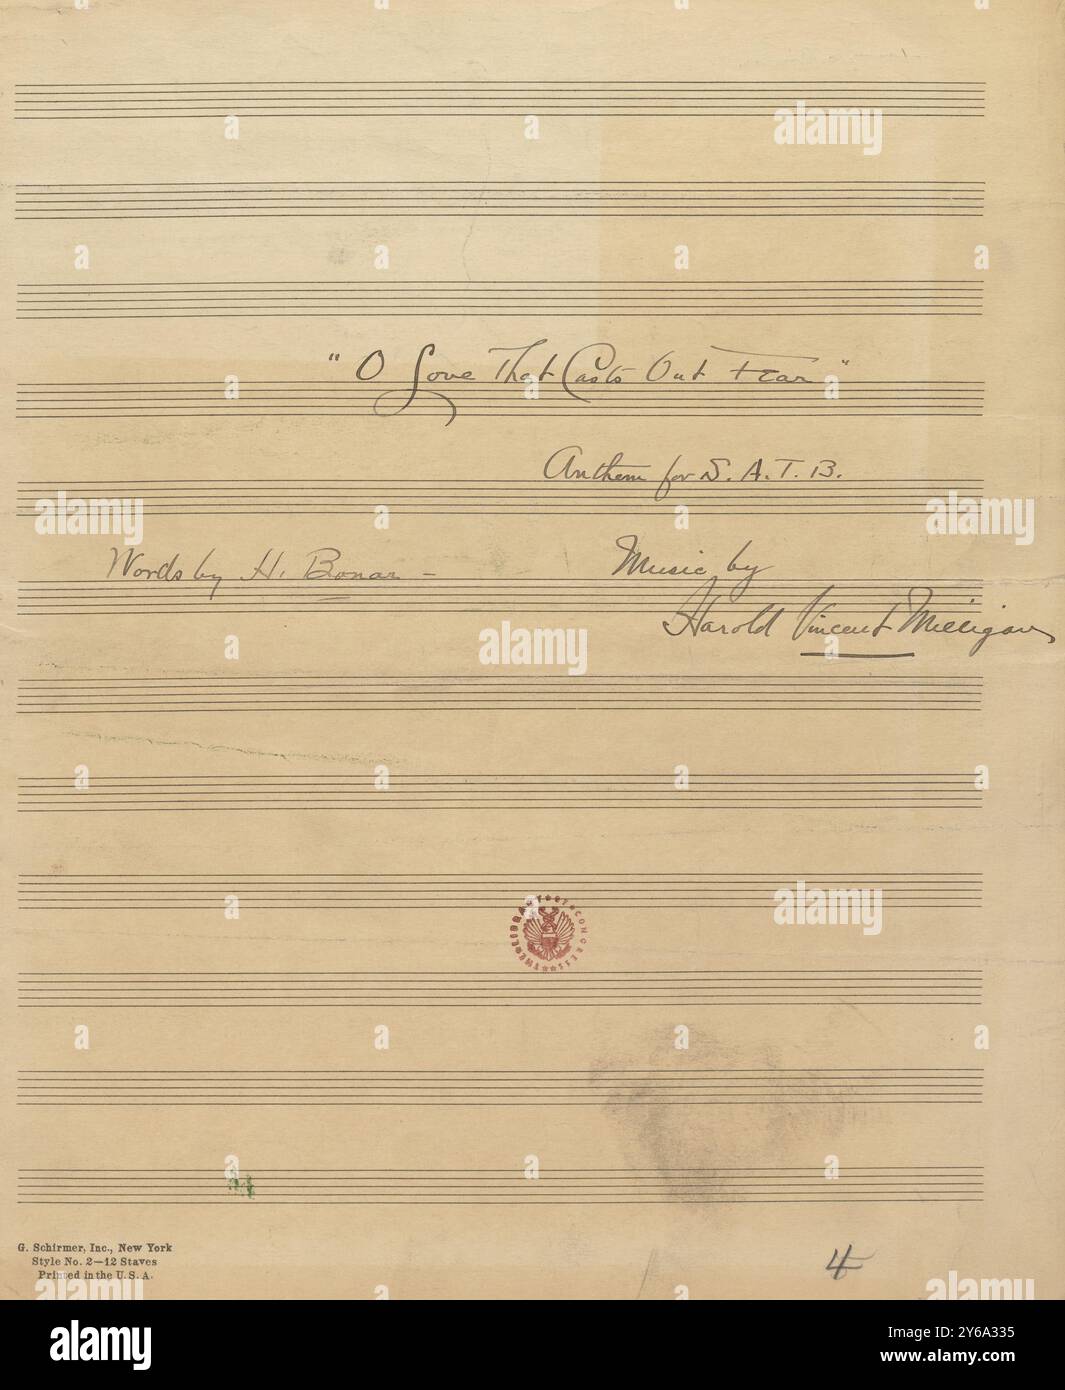 " O Love That Casts Out Fear "
Anthem for S. A. T. B.
Words by H. Bonar –
Music by
Harold Vincent Milligan
THE LIBRARY OF CONGRESS
G. Schirmer, Inc., New York
Style No. 2—12 Staves
Printed in the U. S. A.
4
alamy
Image ID: 2Y6A335
www.alamy.com